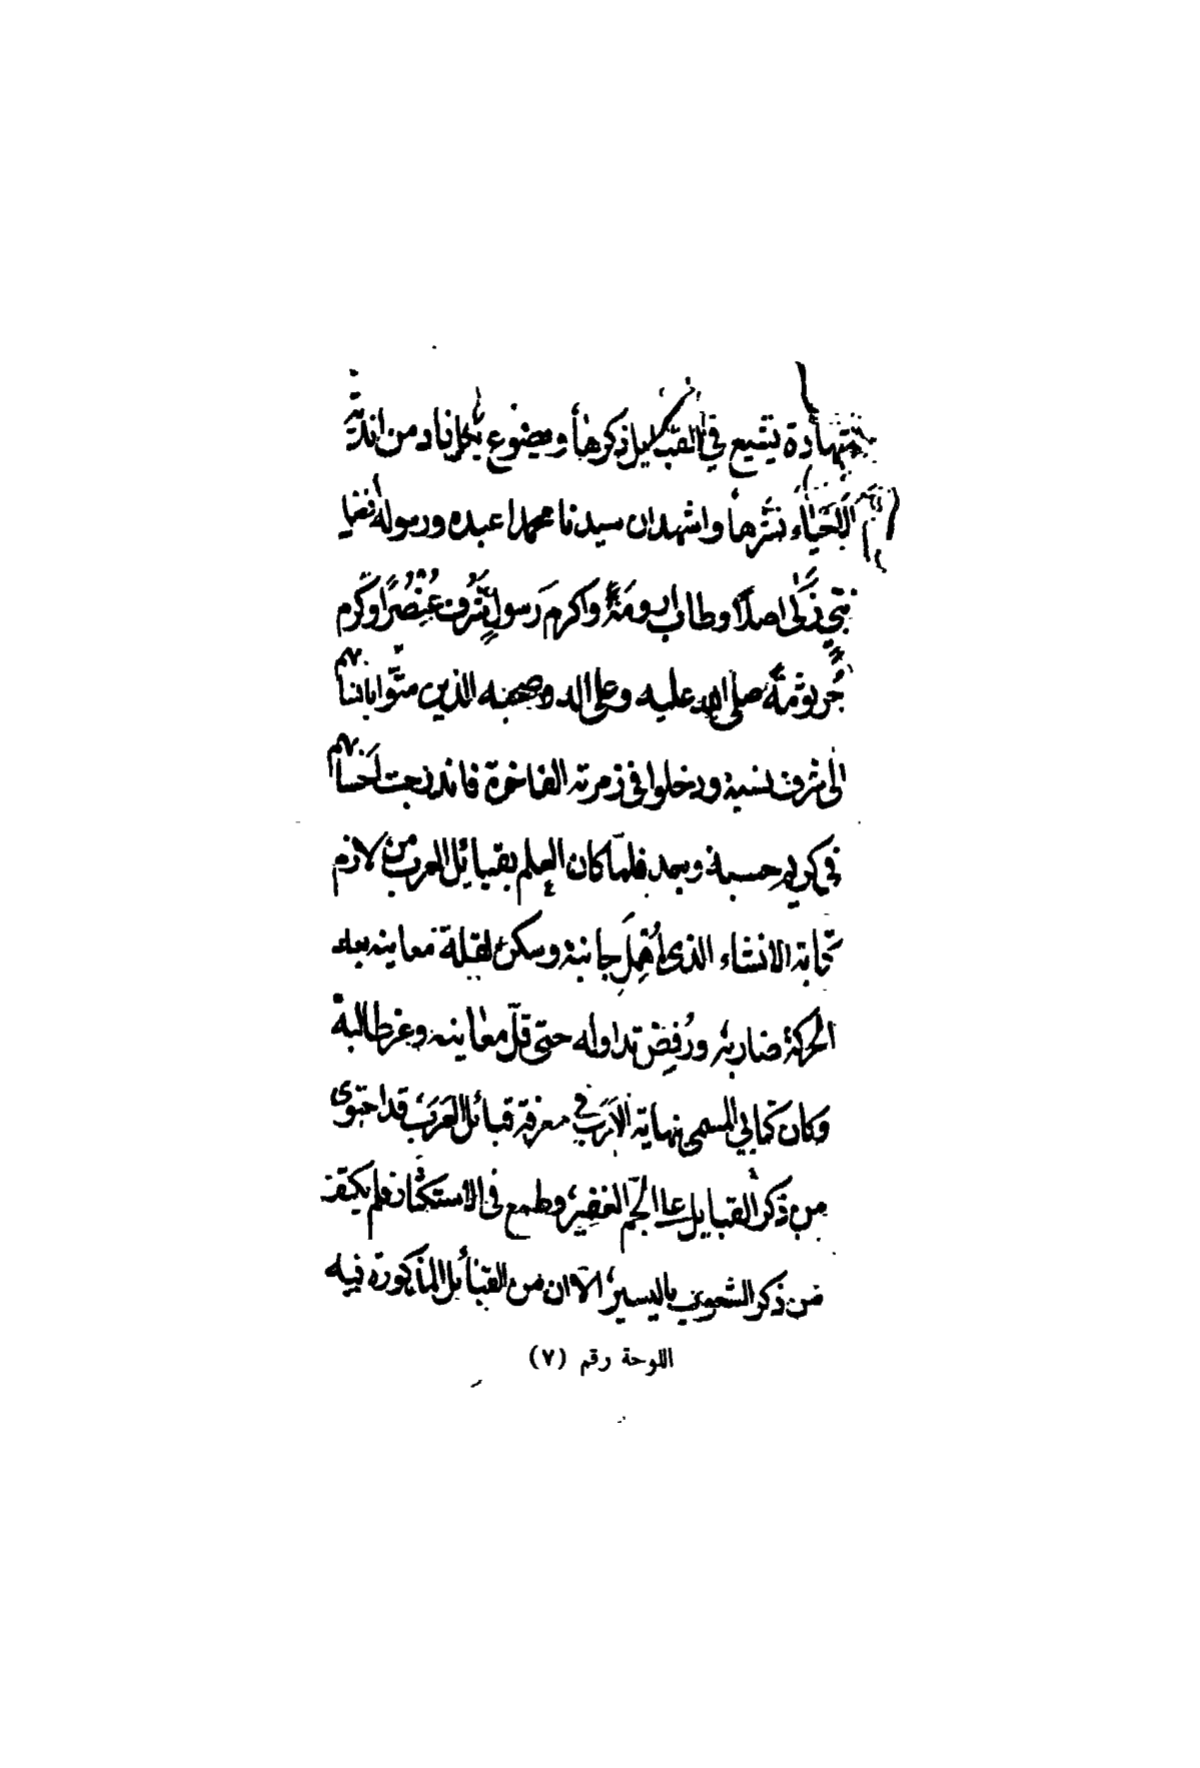 شهادة يشيع في القبايل ذكرها ويضوع بكل ناد من اندية
الاحياء نشرها واشهد ان سيدنا محمدا عبده ورسوله افضل
نبي زكى اصلا وطاب ارومة واكرم رسول شرف عنصرا وكرم
جرثومة صلى الله عليه وعلى اله وصحبه الذين متوا بانسابهم
الى شرف نسبه ودخلوا في زمرته الفاخرة فاندرجت احسابهم
في كريم حسبه وبعد فلما كان العلم بقبايل العرب من لازم
كتابة الانشاء الذي اهمل جانبه وسكن لقلة معاينه بعد
الحركة ضاربه ورفض تداوله حتى قل معاينه وعز طالبه
وكان كتابي المسمى نهاية الارب في معرفة قبائل العرب قد احتوى
من ذكر القبايل على الجم الغفير وطمع في الاستكثار فلم يكتف
من ذكر الشعوب باليسير الا ان من القبائل المذكورة فيه
اللوحة رقم (٧)